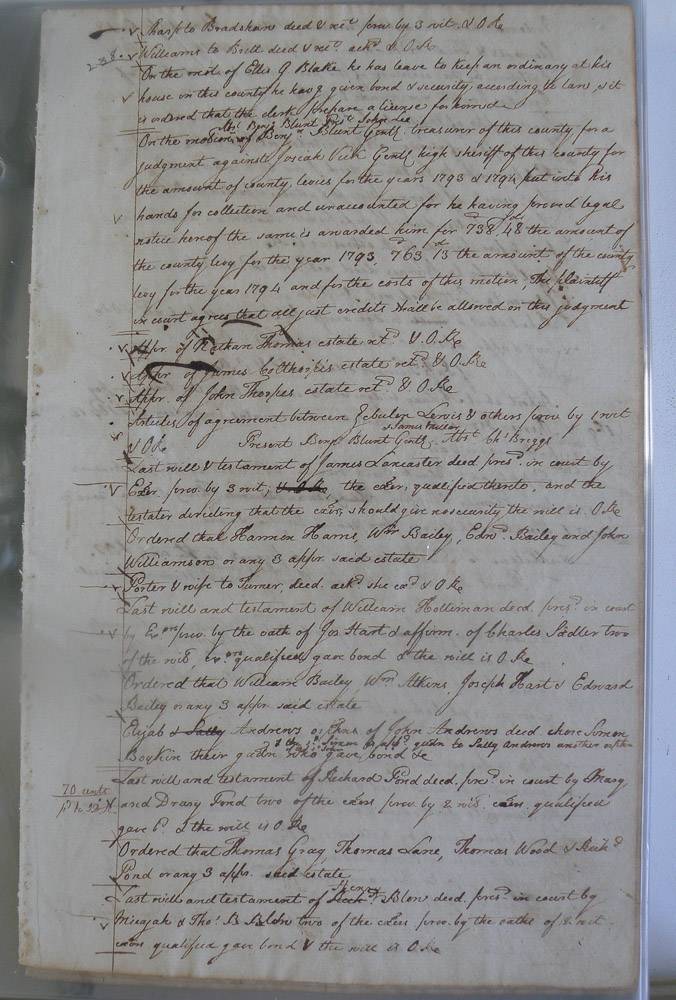 Tharp to Bradshaw deed & rec.t prov. by 3 wit. & O.Re
238 Williams to Britt deed & rec.t ack.d & O.Re
On the mot.n of Ellis G Blake he has leave to keep an ordinary at his
house in this county he hav.g given bond & security, according to law, & it
is ordered that the clerk prepare a license for him &c
Abs.t Benj.a Blunt Pres.t John Lee
On the motion of Benj.a Blunt Gentl. treasurer of this county, for a
judgment against Josiah Vick Gentl. high sheriff of this county for
the amount of county, levies for the years 1793 & 1794 put into his
hands for collection and unaccounted for he having proved legal
notice hereof the same is awarded him for 738 48 the amount of
the county levy for the year 1793, 763 13 the amount of the county
levy for the year 1794 and for the costs of this motion, The plaintiff
in court agrees that all just credits shall be allowed on this judgment
Appr. of Nathan Thomas estate ret.d & O.Re
Appr. of James Colthorp's estate ret.d & O.Re
Appr. of John Thorpes estate ret.d & O.Re
Articles of agreement between Zebulon Lewis & others prov. by 1 wit
& James Fuller
& O.Re Present Benj. Blunt Gentl. Abs.t Ch.s Briggs
Last will & testament of James Lancaster deed. pres.d in court by
Exer. prov. by 3 wit; & O.Re, the exer, qualified thereto, and the
testater directing that the exer, should give no security the will is O.Re
Ordered that Harmon Harris, W.m Bailey, Edw.d Bailey and John
Williamson or any 3 appr. said estate
Porter & wife to Turner, deed. ack.d she ex.d & O.Re
Last will and testament of William Holliman deed. pres.d in court
by Ex.ors prov. by the oath of Jos Hart & affirm. of Charles Sadler two
of the wits, ex.ors qualified, gave bond & the will is O.Re
Ordered that William Bailey, W.m Atkins, Joseph Hart & Edward
Bailey or any 3 appr. said estate
Elijah & Sally Andrews orphns of John Andrews deed. chose Simon
& the s.d Simon is app.d gudn to Sally Andrews another orphan
Boykin their gudn. who gave, bond &c
70 cents
Last will and testament of Richard Pond deed. pres.d in court by
and Drury Pond two of the exers prov. by 2 wits. exers. qualified
gave b.d & the will is O.Re
Ordered that Thomas Gray, Thomas Lane, Thomas Wood & Rich.d
Pond or any 3 appr. said estate
Henry
Last will and testament of Blow deed. pres.d in court by
Micajah & Tho.s B Blow two of the exers prov. by the oaths of 2 wit.
exers qualified gave bond & the will is O.Re